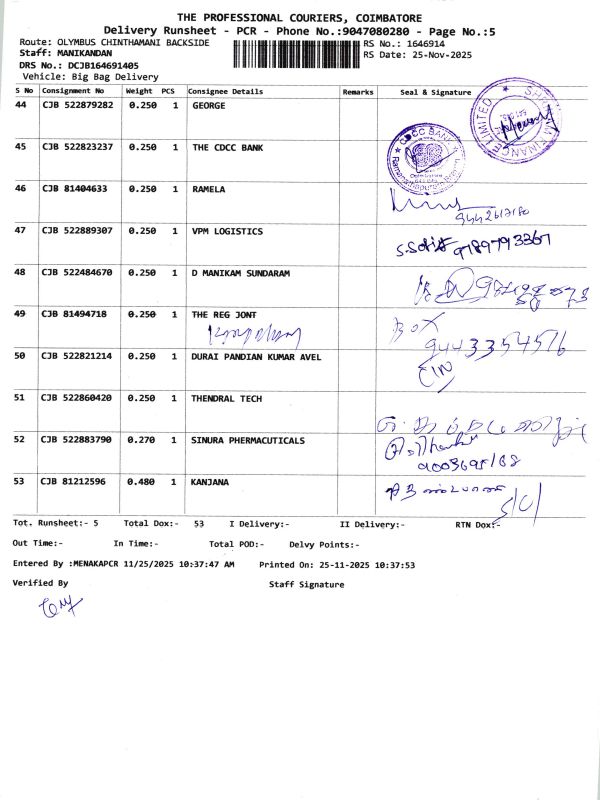 THE PROFESSIONAL COURIERS, COIMBATORE
Delivery Runsheet - PCR - Phone No.:9047080280 - Page No.:5
Route: OLYMBUS CHINTHAMANI BACKSIDE RS No.: 1646914
Staff: MANIKANDAN RS Date: 25-Nov-2025
DRS No.: DCJB164691405
Vehicle: Big Bag Delivery
S No Consignment No Weight PCS Consignee Details Remarks Seal & Signature
44 CJB 522879282 0.250 1 GEORGE
45 CJB 522823237 0.250 1 THE CDCC BANK
CDCC BANK
46 CJB 81404633 0.250 1 RAMELA
47 CJB 522889307 0.250 1 VPM LOGISTICS
9789793367
48 CJB 522484670 0.250 1 D MANIKAM SUNDARAM
49 CJB 81494718 0.250 1 THE REG JONT
BOX
9443354576
50 CJB 522821214 0.250 1 DURAI PANDIAN KUMAR AVEL
51 CJB 522860420 0.250 1 THENDRAL TECH
52 CJB 522883790 0.270 1 SINURA PHERMACUTICALS
53 CJB 81212596 0.480 1 KANJANA
Tot. Runsheet:- 5 Total Dox:- 53 I Delivery:- II Delivery:- RTN Dox:-
Out Time:- In Time:- Total POD:- Delvy Points:-
Entered By :MENAKAPCR 11/25/2025 10:37:47 AM Printed On: 25-11-2025 10:37:53
Verified By Staff Signature